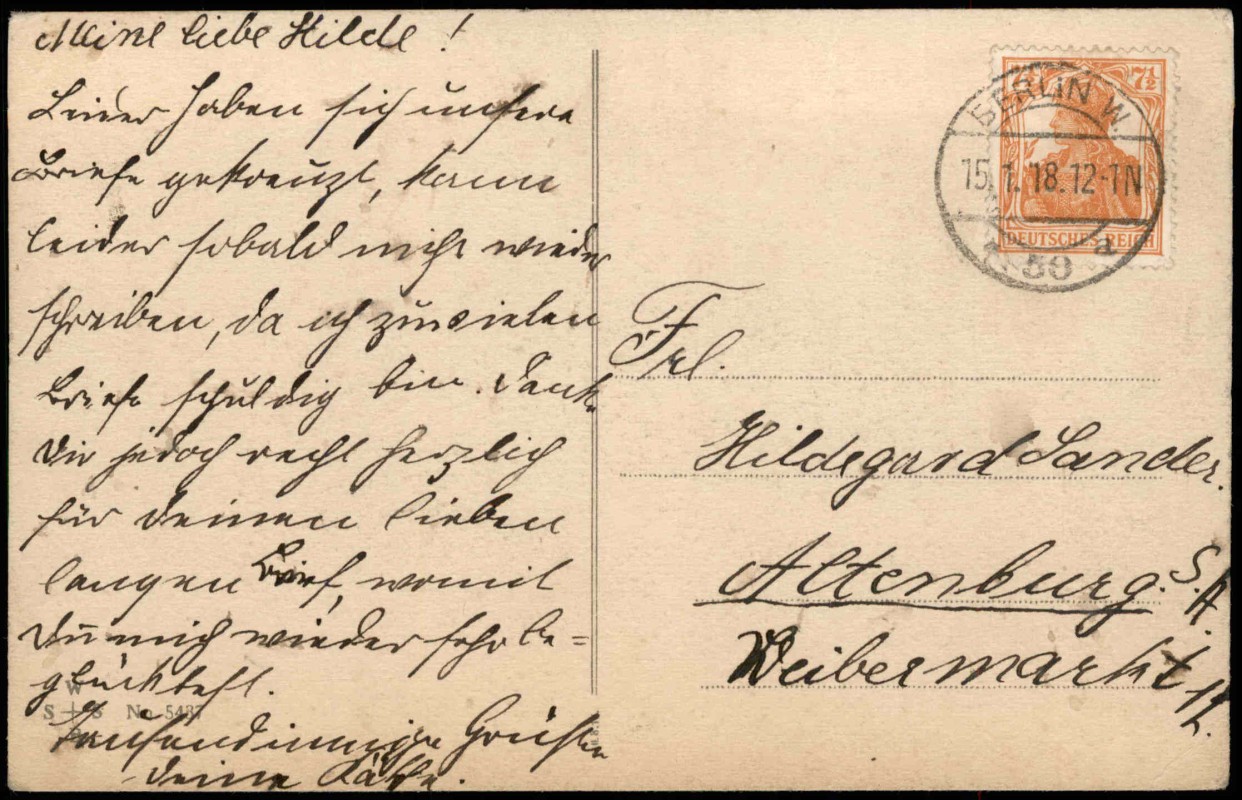 Meine liebe Hilde!
Leider haben sich unsere
Briefe gekreuzt, kann
leider sobald nicht wieder
schreiben, da ich zuvielen
Briefe schuldig bin. Danke
Dir jedoch recht herzlich
für deinen lieben
langen Brief, womit
Du mich wieder sehr be=
glücktest.
Tausendinnige Grüße
deine Käthe.
W
S+S No 5437
BERLIN W.
15.1.18.12-1N
50 a
7½ 7½
DEUTSCHES REICH
Frl.
Hildegard Sander.
Altenburg. S.A.
Weibermarkt 12.